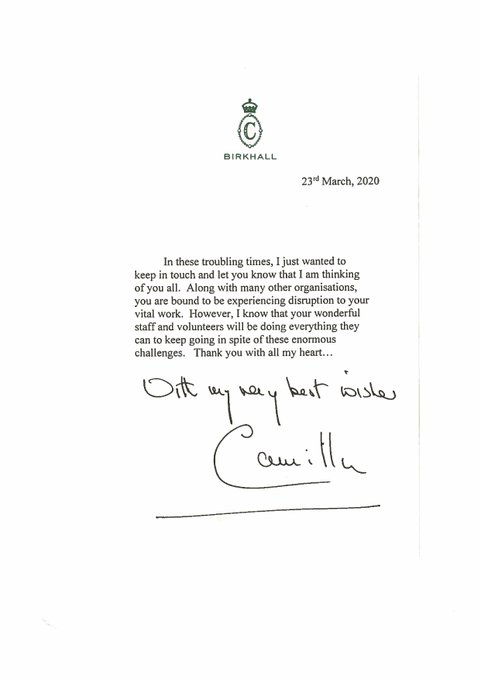 C
BIRKHALL
23rd March, 2020
In these troubling times, I just wanted to
keep in touch and let you know that I am thinking
of you all. Along with many other organisations,
you are bound to be experiencing disruption to your
vital work. However, I know that your wonderful
staff and volunteers will be doing everything they
can to keep going in spite of these enormous
challenges. Thank you with all my heart…
With my very best wishes
Camilla